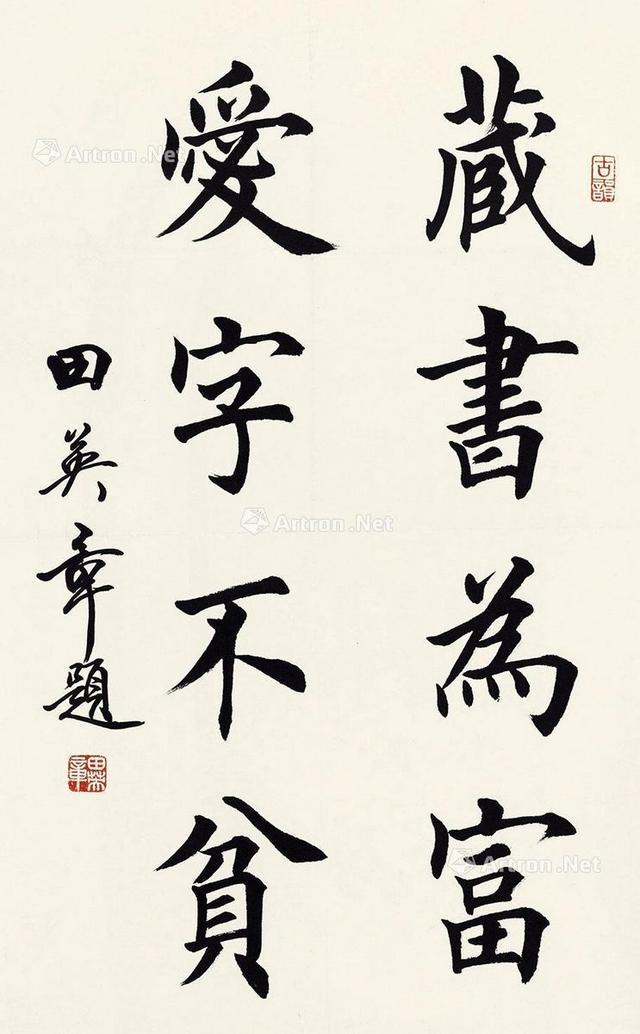 藏書為富
愛字不貧
田英章題
古韻
田英章
Artron.Net
Artron.Net
Artron.Net